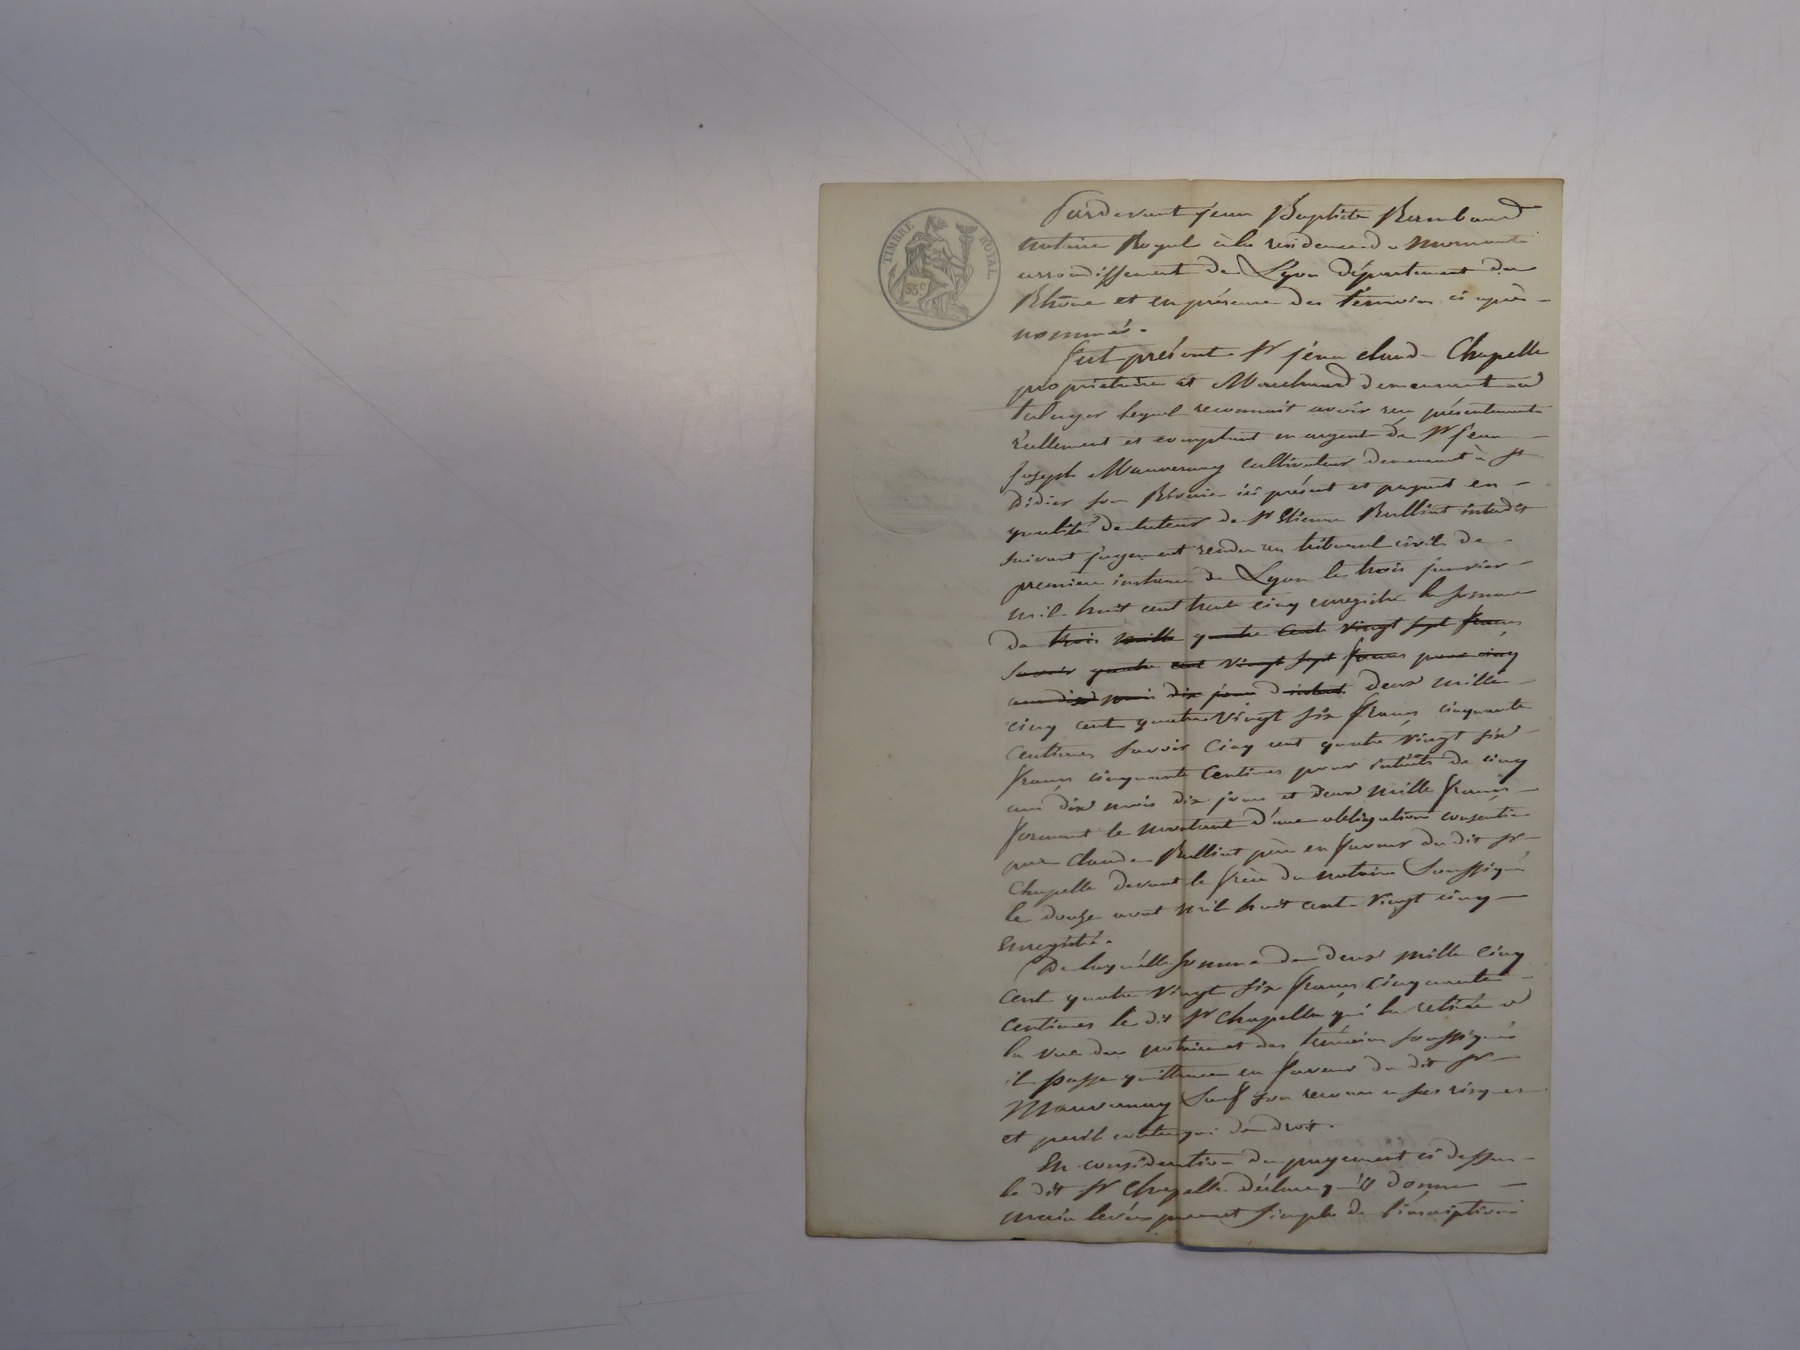 TIMBRE ROYAL.
35c
Pardevant jean Baptiste Rambaud
notaire Royal à la residence de mornant
arrondissement de Lyon département du
Rhône et en présence des témoins ci après
nommés.
fut présent Sr jean claude Chapelle
propriétaire et Marchand demeurant
lequel reconnait avoir reçu présentement
réellement et comptant en argent de Sr jean
joseph Mauvernay cultivateur demeurant à St
Didier sous Riverie ici présent et payant en
qualité de tuteur de Sr Etienne Bulliat interdit
suivant jugement rendu au tribunal civil de
première instance de Lyon le trois janvier
mil huit cent trente cinq enregistré la somme
de trois mille quatre cent vingt sept francs
savoir quatre cent vingt sept francs pour cinq
ans dix mois dix jours d'intérêt deux mille
cinq cent quatre vingt six francs cinquante
centimes savoir Cinq cent quatre vingt six
francs cinquante Centimes pour intérêts de cinq
ans dix mois dix jours et deux mille francs
formant le montant d'une obligation consentie
par Claude Bulliat père en faveur du dit Sr
Chapelle devant le frère du notaire Soussigné
le douze aout mil huit cent vingt cinq
enregistré.
De laquelle somme de deux mille cinq
cent quatre vingt six francs cinquante
centimes le dit Sr Chapelle qui l'a retirée a
la vue du notaire et des témoins soussignés
il passe quittance en faveur du dit Sr
Mauvernay Sauf son recours a ses risques
et péril contre qui de droit.
En considération du payement ci dessus
le dit Sr Chapelle déclare qu'il donne
main levée pure et simple de l'inscription